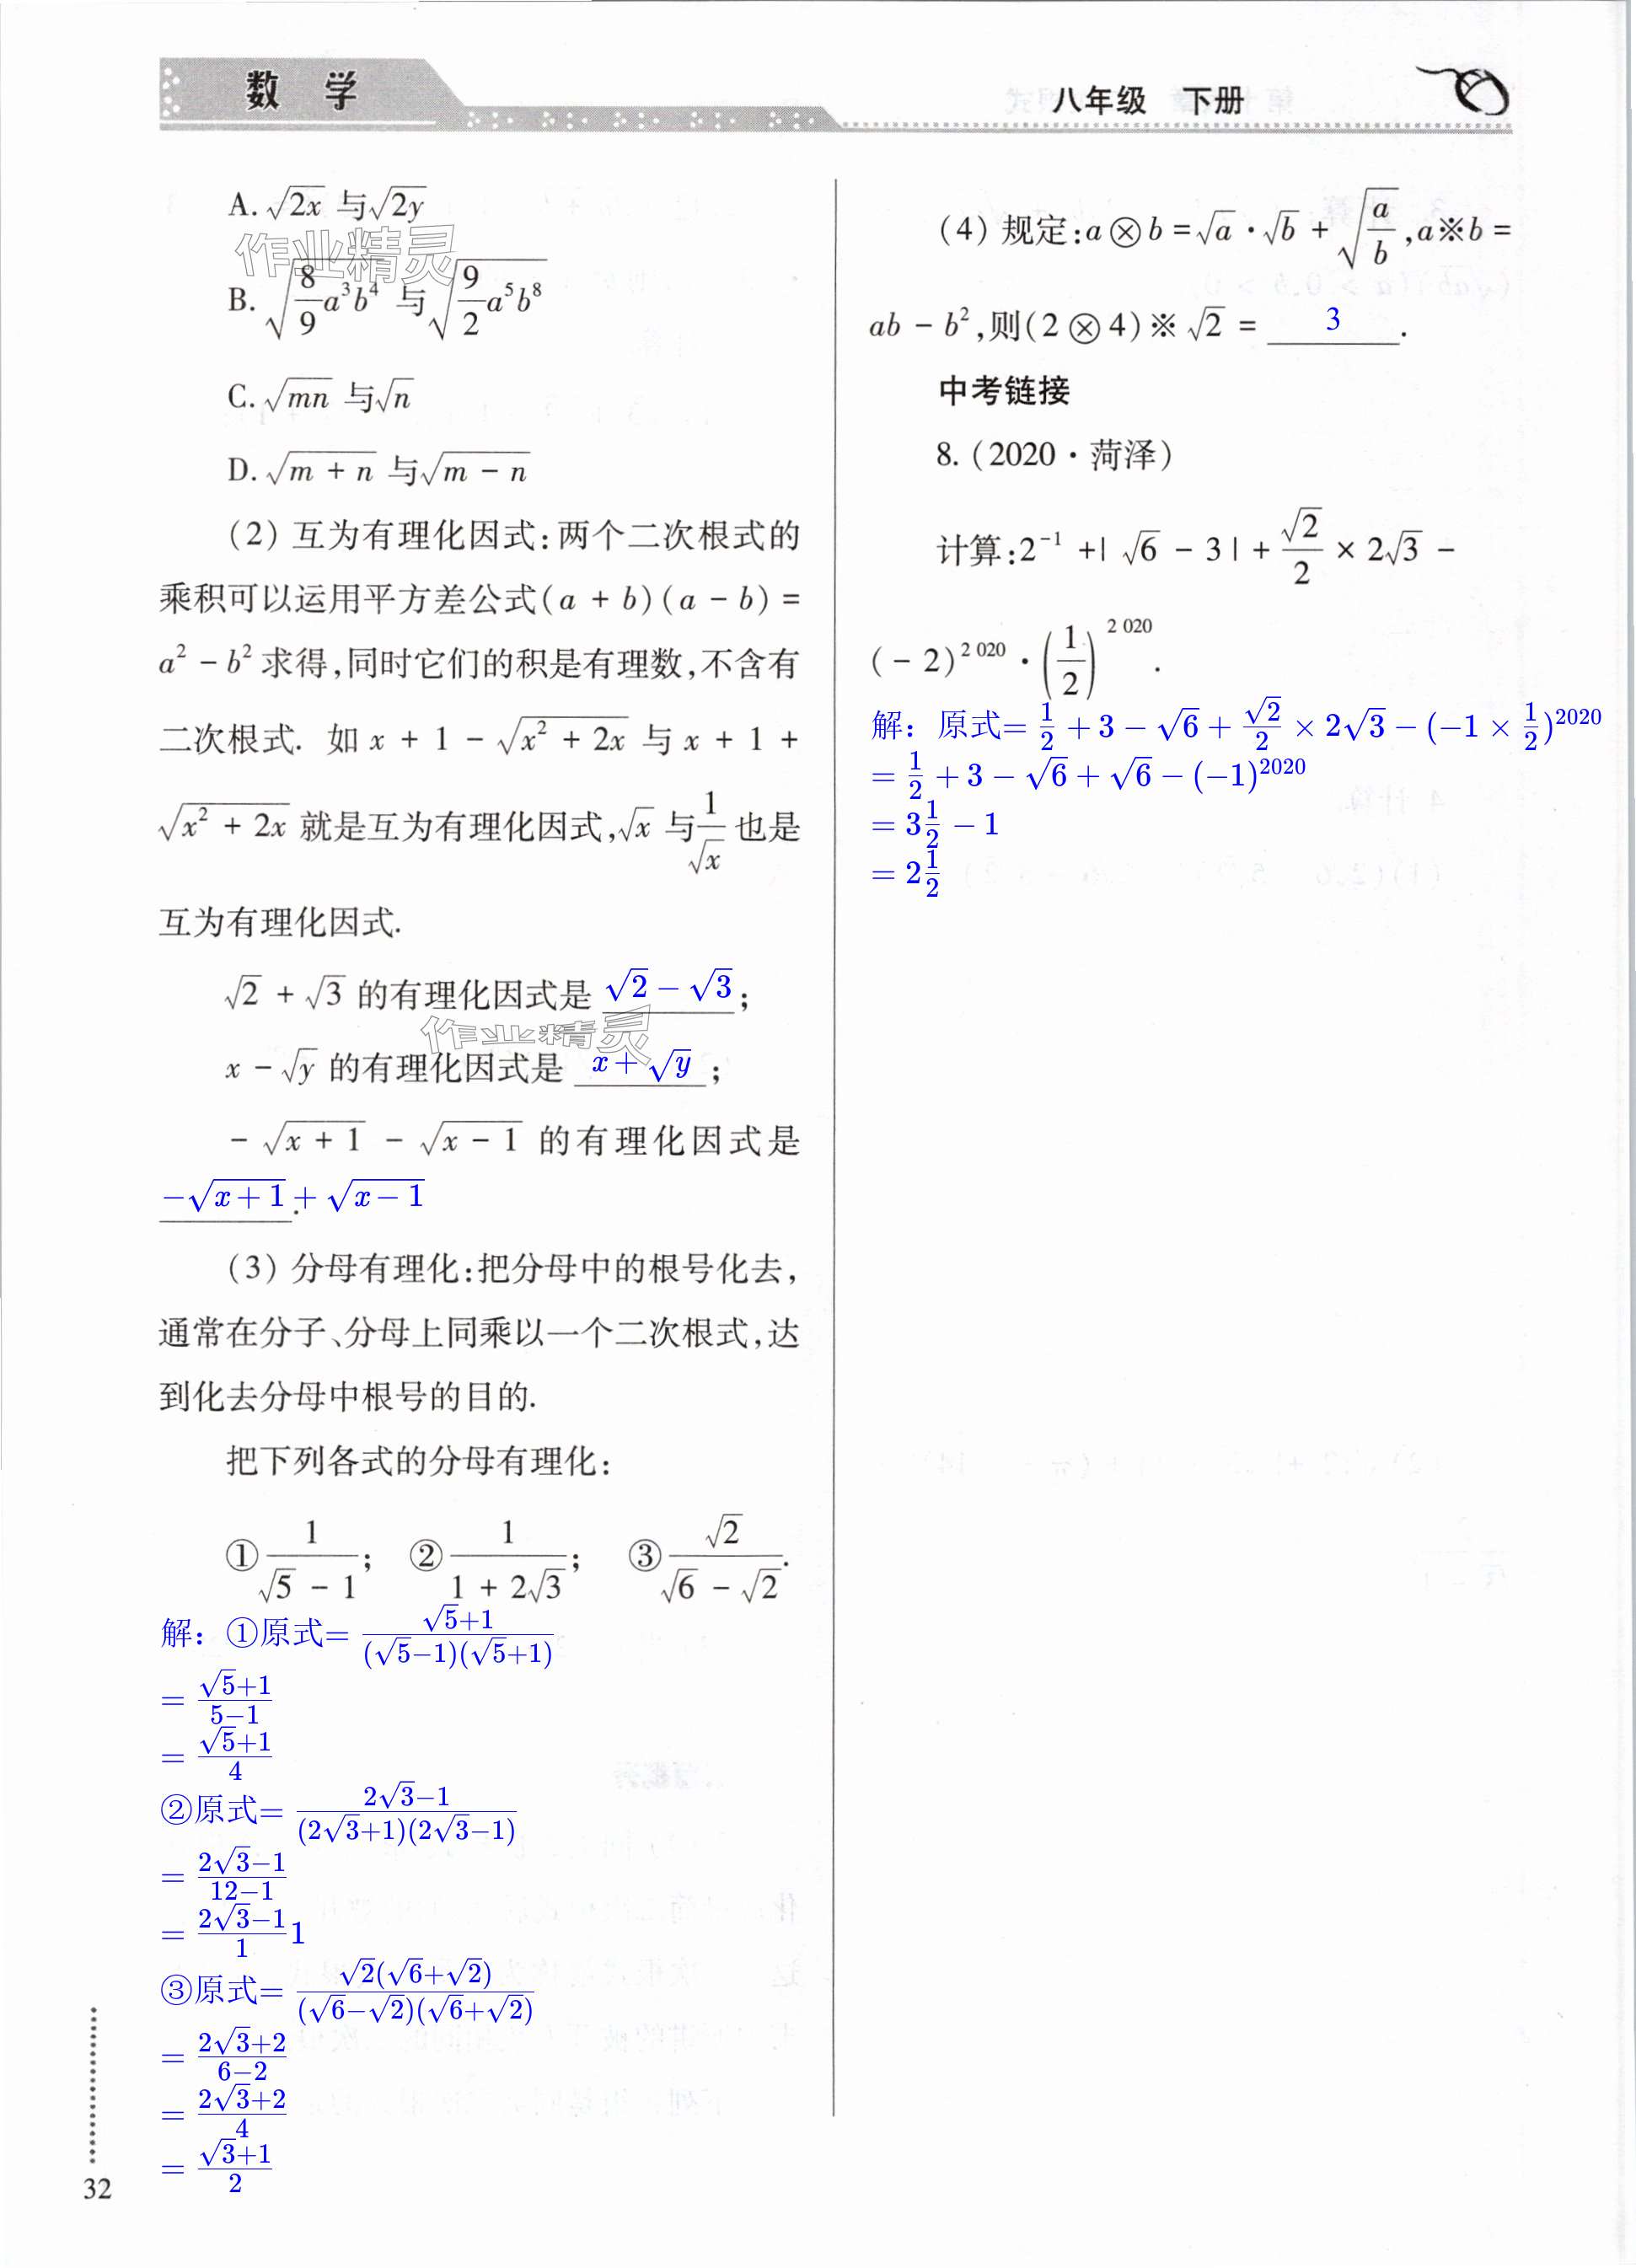 数 学
八年级 下册
A. √(2x) 与√(2y)
作业精灵
B. √(8/9 a³b⁴) 与 √(9/2 a⁵b⁸)
C. √(mn) 与√n
D. √(m + n) 与√(m - n)
(2) 互为有理化因式:两个二次根式的
乘积可以运用平方差公式(a + b)(a - b) =
a² - b² 求得,同时它们的积是有理数,不含有
二次根式. 如 x + 1 - √(x² + 2x) 与 x + 1 +
√(x² + 2x) 就是互为有理化因式,√x 与 1/√x 也是
互为有理化因式.
√2 + √3 的有理化因式是 √2 − √3 ;
作业精灵
x - √y 的有理化因式是 x + √y ;
- √(x + 1) - √(x - 1) 的有理化因式是
−√(x+1) + √(x−1) .
(3) 分母有理化:把分母中的根号化去,
通常在分子、分母上同乘以一个二次根式,达
到化去分母中根号的目的.
把下列各式的分母有理化:
① 1/(√5 - 1); ② 1/(1 + 2√3); ③ √2/(√6 - √2).
解: ①原式= (√5+1)/((√5−1)(√5+1))
= (√5+1)/(5−1)
= (√5+1)/4
②原式= (2√3−1)/((2√3+1)(2√3−1))
= (2√3−1)/(12−1)
= (2√3−1)/1 1
③原式= √2(√6+√2)/((√6−√2)(√6+√2))
= (2√3+2)/(6−2)
= (2√3+2)/4
= (√3+1)/2
32
(4) 规定:a ⊗ b = √a · √b + √(a/b),a※b =
ab - b²,则(2 ⊗ 4)※ √2 = 3 .
中考链接
8. (2020 · 菏泽)
计算:2⁻¹ +| √6 - 3 | + √2/2 × 2√3 -
( - 2)^(2 020) · (1/2)^(2 020).
解: 原式= 1/2 + 3 − √6 + √2/2 × 2√3 − (−1 × 1/2)^2020
= 1/2 + 3 − √6 + √6 − (−1)^2020
= 3 1/2 − 1
= 2 1/2